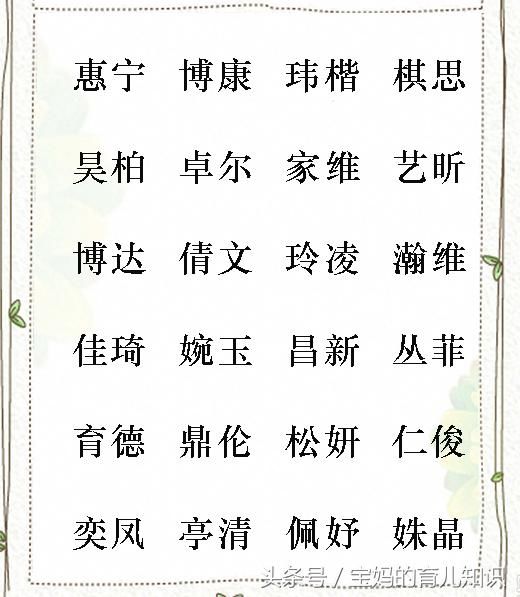 惠宁 博康 玮楷 棋思
昊柏 卓尔 家维 艺昕
博达 倩文 玲凌 瀚维
佳琦 婉玉 昌新 丛菲
育德 鼎伦 松妍 仁俊
奕凤 亭清 佩妤 姝晶
头条号 / 宝妈的育儿知识